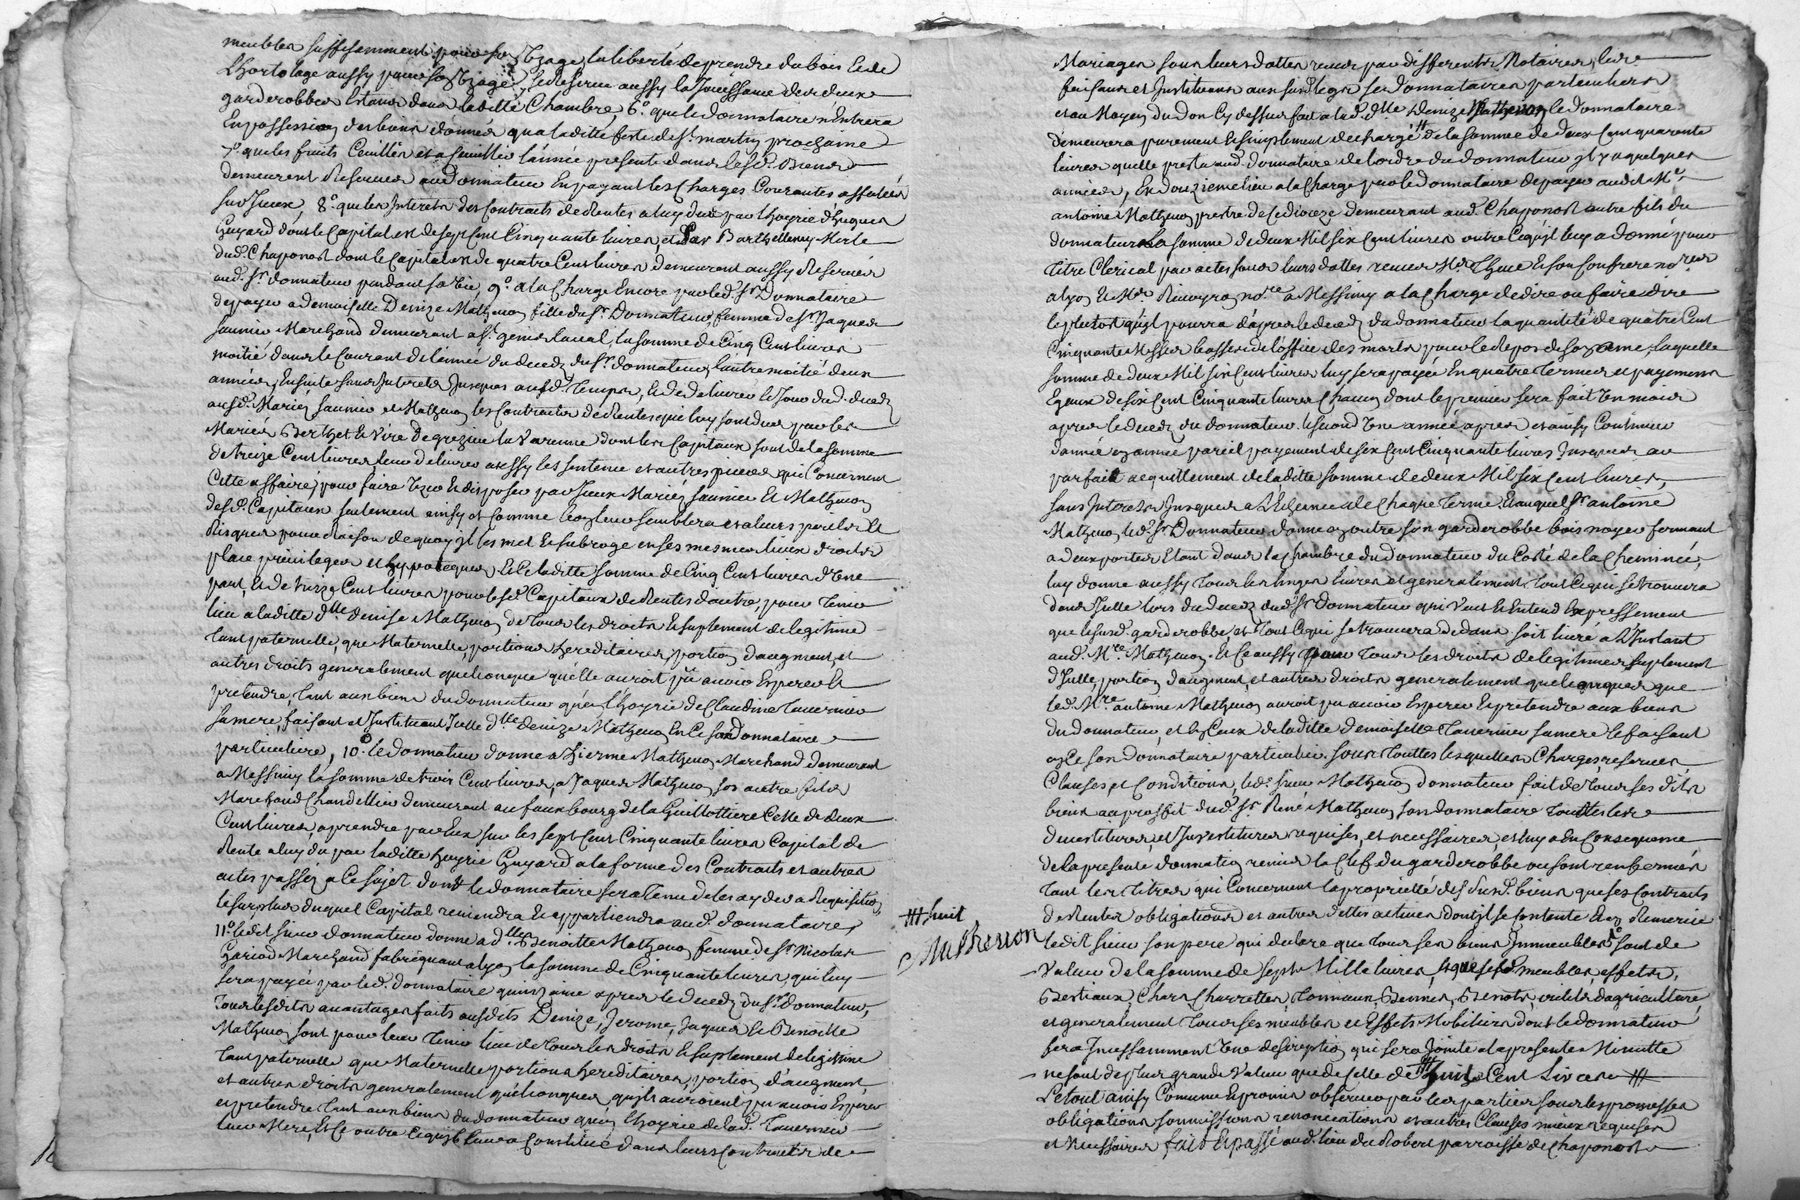 meubles suffisamment pour son Uzage, la liberté de prendre du bois et de
L'hortolage aussy pour son Uzage, se Reserve aussy la Jouissance des deux
garderobbes Estans dans laditte Chambre, 6°. que le donnataire n'entrera
En possession des biens donnés qu'a laditte feste de St. martin prochaine
7°. que les fruits Ceuillis et a Ceuillir l'année presente dans lesd. Biens
demeurent Reservés au Donnateur En payant les Charges Courantes affectées
sur Iceux, 8°. que les Interets des Contracts de Rentes a luy dus par l'hoyrie d'hugues
Guyard dont le Capital est de sept Cent Cinquante livres, et Par Barthellemy Merle
dud. Chaponost dont le Capital est de quatre Cent livres demeurent aussy Reservés
aud. Sr. donnateur pendant sa Vie, 9°. a la Charge Encore par led. Sr. Donnataire
de payer a demoiselle Denize Mathevon fille du Sr. Donnateur, femme de Sr. Jaques
Saunier Marchand demeurant a St. genis laval, la somme de Cinq Cent livres
moitié dans le Courant de l'année du decez du Sr. donnateur, l'autre moitié deux
années Ensuite sans Interets Jusques aud. Temps, Et de delivrer le Jour dud. decez
ausd. Mariés Saunier et Mathevon les Contracts de Rentes qui luy sont dus par les
Mariés Berthet et Vire de grezieu la Varenne dont les Capitaux sont de la somme
de treize Cent livres, leur delivrer aussy les sentence et autres pieces qui Concernent
Cette affaire, pour faire Uzer et disposer par Iceux Mariés Saunier et Mathevon
desd. Capitaux seulement ainsy et Comme bon leur semblera et a leurs perils et
Risques pour Raison de quoy Il les met et subroge en ses mesmes lieux droits
place privileges et hypoteques, Et Ce laditte somme de Cinq Cent livres d'Une
part, et de treize Cent livres pour lesd. Capitaux de Rentes d'autre, pour Tenir
lieu a laditte dlle. denise Mathevon de Tous les droits et suplement de legitime
Tant paternelle, que Maternelle, portions hereditaires, portion d'augment, et
autres droits generalement quelconque qu'elle auroit pû avoir Esperer et
pretendre, Tant aux biens du donnateur que l'hoyrie de Claudine Tavernier
sa mere, faisant et Instituant Icelle dlle. denize Mathevon En Ce son donnataire
particuliere, 10°. le donnateur donne a hierme Mathevon Marchand demeurant
a Messimy la somme de trois Cent livres, a Jaques Mathevon son autre fils
Marchand Chandellier demeurant au faux bourg de la Guillottiere Celle de deux
Cent livres, a prendre par Eux sur les sept Cent Cinquante livres Capital de
Rente a luy du par laditte hoyrie Guyard a la forme des Contracts et autres
actes passés a Ce sujet dont le donnataire sera Tenu de les ayder a Requisition,
le surplus duquel Capital reviendra et appartiendra aud. donnataire,
11°. ledit sieur donnateur donne a dlle. Benoitte Mathevon femme de Sr. Nicolas
Gariod Marchand fabriquant a lyon la somme de Cinquante livres, qui luy
sera payée par led. donnataire quinzaine apres le decez du Sr. donnateur,
Tous lesdits avantages faits ausdits Denize, Jerome, Jaques et Benoitte
Mathevon sont pour leur Tenir lieu de Tous les droits et suplement de legitime
Tant paternelle que Maternelle portions hereditaires, portion d'augment
et autres droits generalement quelconques qu'ils auroient pu avoir Esperer
et pretendre Tant aux biens du donnateur qu'en l'hoyrie de lad. Tavernier
leur Mere, Et Ce outre Ce qu'il leur a Constitué dans leurs Contracts de
Mariages sous leurs dattes reçus par differents Notaires, les
faisant et Instituant aux susd. legs ses donnataires particuliers
et au Moyen du don Cy dessus fait a lad. dlle. Denize Mathevon, le donnataire
demeurera purement et simplement dechargé de la somme de deux Cent quarante
livres qu'elle presta aud. donnataire de l'ordre du donnateur il y a quelques
années, En douzieme lieu a la Charge par le donnataire de payer audit Mre.
antoine Mathevon prestre de Ce dioceze demeurant aud. Chaponost autre fils du
donnateur la somme de deux Mil six Cent livres outre Ce qu'il luy a donné pour
Titre Clerical par actes sous leurs dattes reçus Mre. Thyve et son Confrere nores.
a lyon et Mre. Rieuyro nore. a Messimy a la Charge de dire ou faire dire
le plutost qu'il pourra d'apres le decez du donnateur la quantité de quatre Cent
Cinquante Messes basses de l'office des morts pour le Repos de son ame, laquelle
somme de deux Mil six Cent livres luy sera payée En quatre Termes et payements
Egaux de six Cent Cinquante livres Chacun dont le premier sera fait Un mois
apres le decez du donnateur, le second Une année apres et ainsy Continuer
d'année en année pareil payement de six Cent Cinquante livres Jusques au
parfait acquittement de laditte somme de deux Mil six Cent livres,
sans Interests Jusques a l'Echeance de Chaque Terme, Et auquel Sr. antoine
Mathevon led. Sr. Donnateur donne en outre son garderobbe bois noyer fermant
a deux portes Etant dans la Chambre du donnateur du Costé de la Cheminée,
luy donne aussy Tous les linges livres et generalement Tout Ce qui se trouvera
dans Icelle lors du decez dud. Sr. Donnateur qui Veut et Entend Expressement
que lesusd. garderobbe, et Tout Ce qui se trouvera dedans soit livré a L'Instant
aud. Mre. Mathevon. Et Ce aussy pour Tous les droits de legitimes suplement
d'Icelle, portion d'augment, et autres droits generalement quelconques que
led. Mre. antoine Mathevon auroit pu avoir Esperer et pretendre aux biens
du donnateur, et en Ceux de laditte demoiselle Tavernier sa mere le faisant
en Ce son donnataire particulier. sous Touttes lesquelles Charges, reserves
Clauses et Conditions, led. sieur Mathevon donnateur fait de Tous ses dits
biens au proffit dud. Sr. René Mathevon son donnataire Touttes les
devestitures, et Investitures requises, et necessaires, et luy a En Consequence
de la presente donnation remis la Clef du garderobbe ou sont renfermés
Tant les Titres qui Concernent la proprieté des susd. biens que ses Contracts
de Rentes obligations et autres dettes actives dont il se Contente et en Remercie
ledit sieur son pere qui declare que Tous ses biens Immeubles sont de
Valeur de la somme de sept Mille livres, et que ses meubles, effets,
Bestiaux, Chars Charrettes, Tonneaux Bennes, Benots, outils d'agriculture
et generalement Tous ses meubles et Effets Mobiliers dont le donnateur
sera Incessamment Une description qui sera Jointe a la presente Minutte
ne sont de plus grande Valeur que de Celle de huit Cent Livres
Le tout ainsy Convenu Et promis observer par les parties sous les promesses
obligations soumissions renonciations et autres Clauses mieux requises
et necessaires fait et passé aud. lieu du Robert parroisse de Chaponost
huit
Mathevon